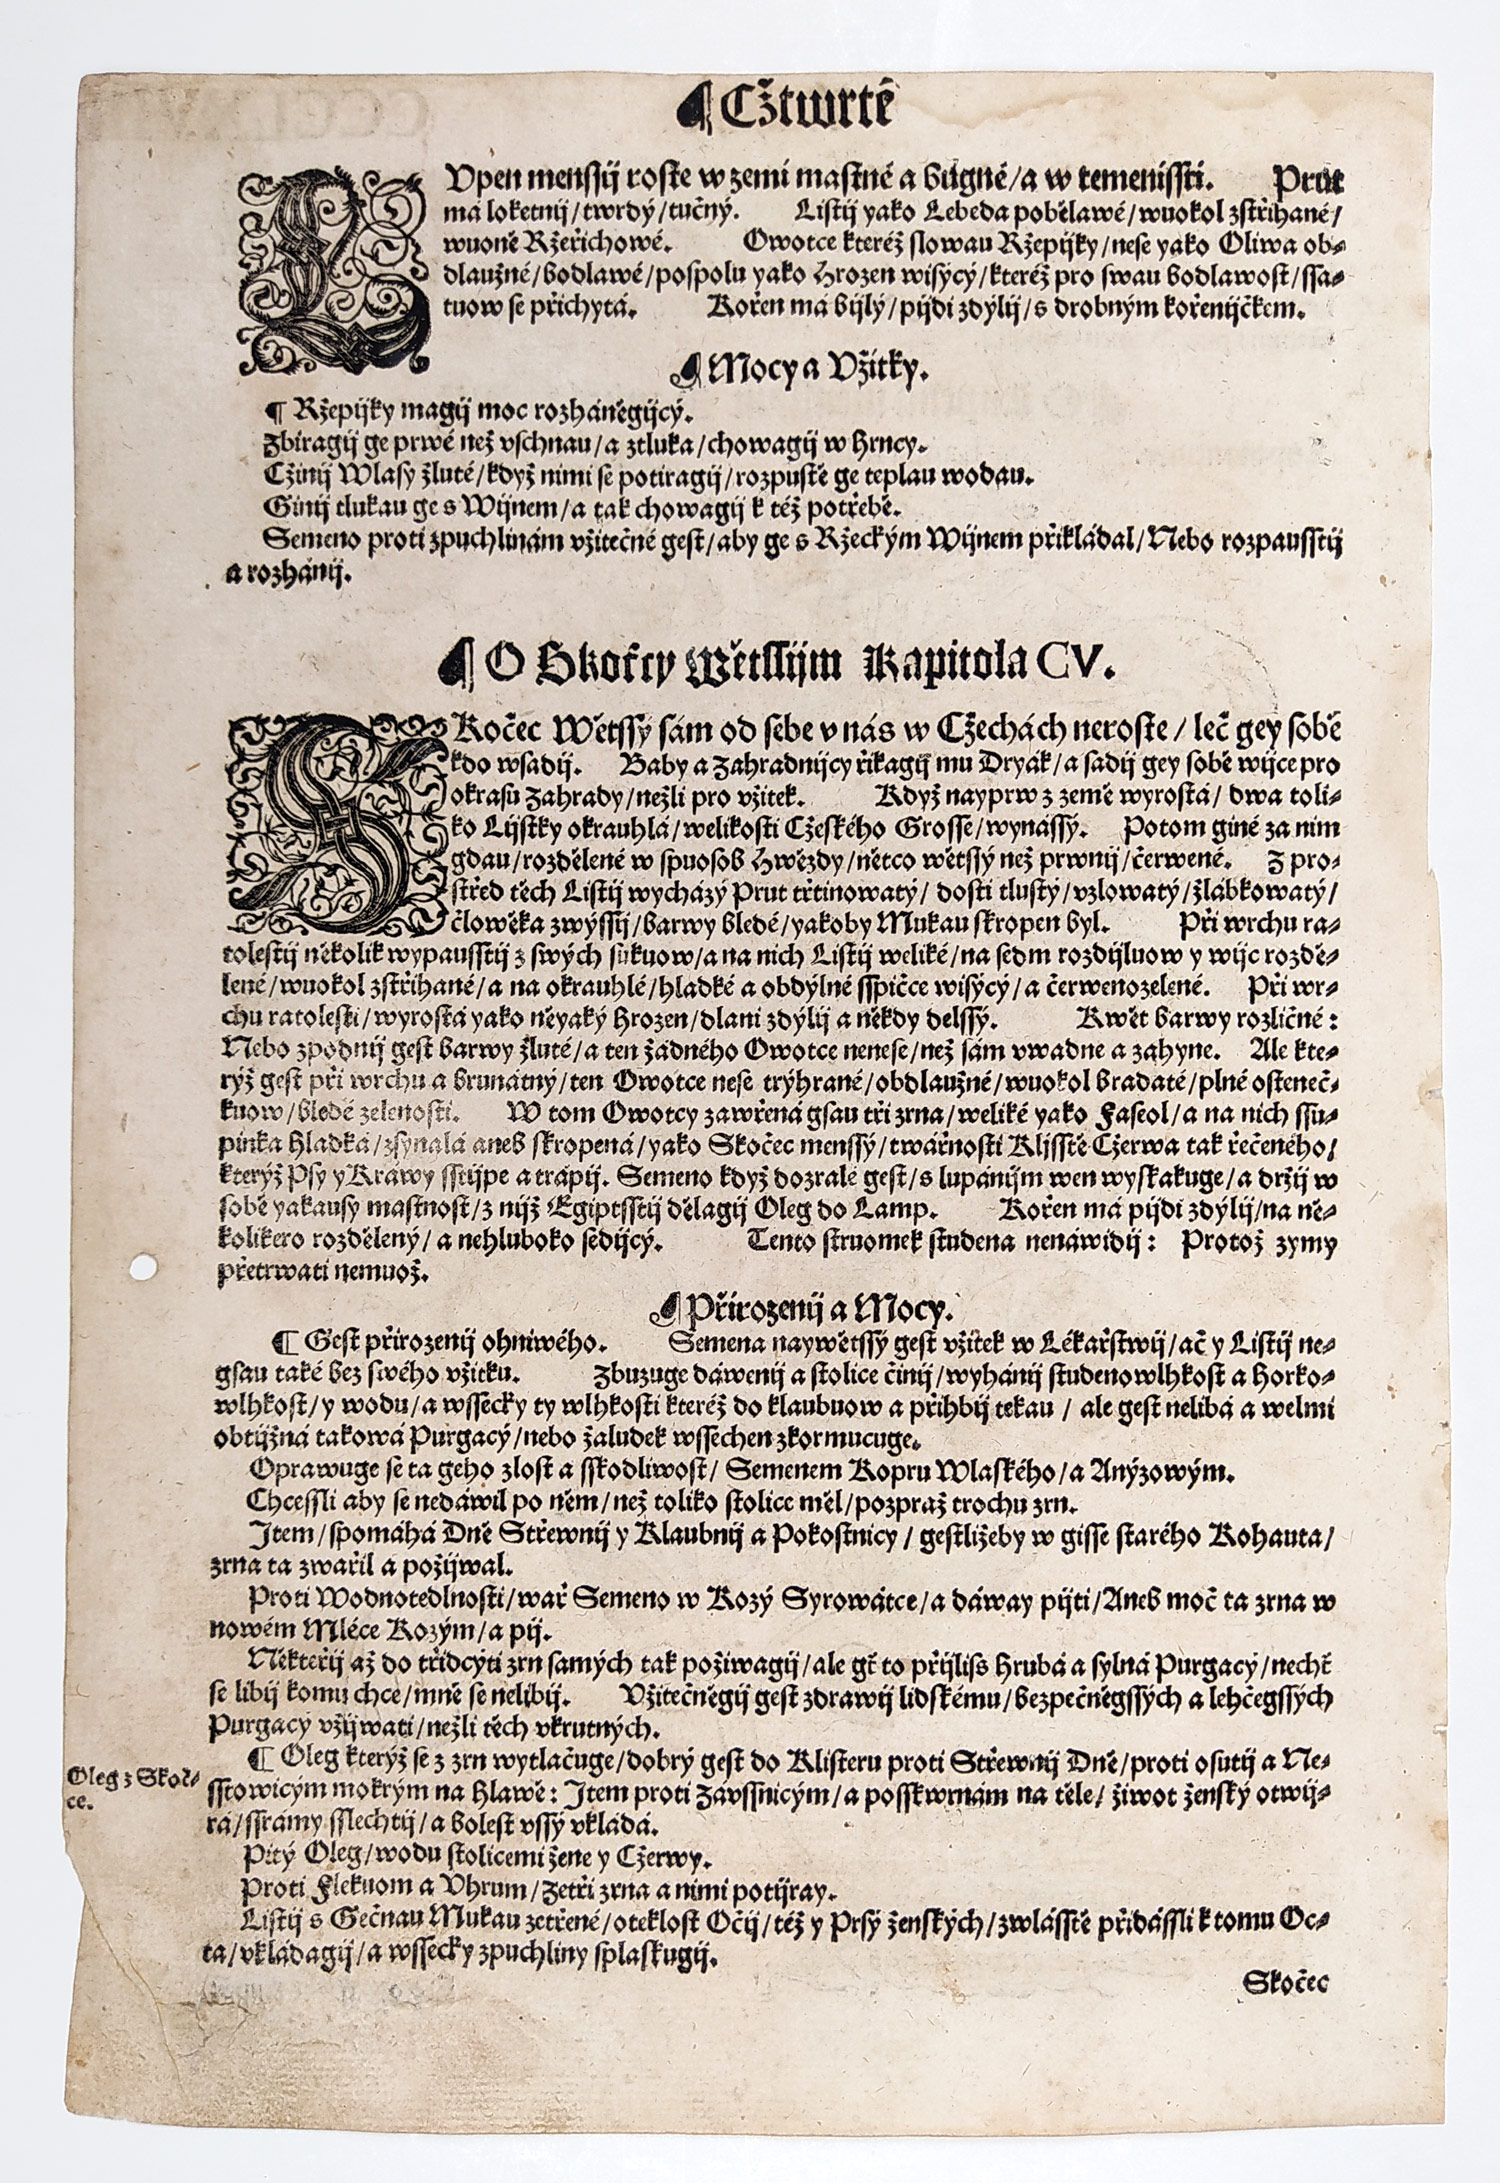 ¶ Cžtwrté
LVpen menssij roste w zemi mastné a bugné/a w temenissti. Prut
má loketnij/twrdý/tučný. Listij yako Lebeda pobělawé/wuokol zstřihané/
wuoně Ržeřichowé. Owotce kteréž slowau Ržepijky/nese yako Oliwa ob-
dlaužné/bodlawé/pospolu yako Hrozen wisýcý/kteréž pro swau bodlawost/ssa-
tuow se přichytá. Kořen má bijlý/pijdi zdýlij/s drobným kořenijčkem.
¶ Mocy a Vžitky.
¶ Ržepijky magij moc rozháněgijcý.
Zbiragij ge prwé než vschnau/a ztluka/chowagij w Hrncy.
Cžinij Wlasy žluté/když nimi se potiragij/rozpustě ge teplau wodau.
Ginij tlukau ge s Wijnem/a tak chowagij k též potřebě.
Semeno proti zpuchlinám vžitečné gest/aby ge s Ržeckým Wijnem přikládal/Nebo rozpausstij
a rozhánij.
¶ O Skočcy Wětssijm Kapitola CV.
SKočec Wětssý sám od sebe v nás w Cžechách neroste/ leč gey sobě
kdo wsadij. Baby a Zahradnijcy řikagij mu Dryák/a sadij gey sobě wijce pro
okrasu Zahrady/nežli pro vžitek. Když nayprw z země wyrostá/ dwa toli-
ko Lijstky okrauhlá/welikosti Cžeského Grosse/wynássý. Potom giné za nim
gdau/rozdělené w spuosob Hwězdy/nětco wětssý než prwnij/čerwené. Z pro-
střed těch Listij wycházý Prut třtinowatý/ dosti tlustý/vzlowatý/žlábkowatý/
člowěka zwýssij/barwy bledé/yakoby Mukau skropen byl. Při wrchu ra-
tolestij několik wypausstij z swých sukuow/a na nich Listij weliké/na sedm rozdijluow y wijc rozdě-
lené/wuokol zstřihané/a na okrauhlé/hladké a obdýlné sspičce wisýcý/a čerwenozelené. Při wr-
chu ratolesti/wyrostá yako něyaký Hrozen/dlani zdýlij a někdy delssý. Kwět barwy rozličné:
Nebo zpodnij gest barwy žluté/a ten žádného Owotce nenese/než sám vwadne a zahyne. Ale kte-
rýž gest při wrchu a brunátný/ten Owotce nese trýhrané/obdlaužné/wuokol bradaté/plné osteneč-
kuow/bledě zelenosti. W tom Owotcy zawřená gsau tři zrna/weliké yako Faseol/a na nich ssu-
pinka hladká/zsynalá aneb skropená/yako Skočec menssý/twářnosti Klijsstě Cžerwa tak řečeného/
kterýž Psy y Kráwy sstijpe a trápij. Semeno když dozralé gest/s lupánijm wen wyskakuge/a držij w
sobě yakausy mastnost/z nijž Egiptsstij dělagij Oleg do Lamp. Kořen má pijdi zdýlij/na ně-
kolikero rozdělený/ a nehluboko sedijcý. Tento struomek studena nenáwidij: Protož zymy
přetrwati nemuož.
¶ Přirozenij a Mocy.
¶ Gest přirozenij ohniwého. Semena naywětssý gest vžitek w Lékařstwij/ač y Listij ne-
gsau také bez swého vžitku. Zbuzuge dáwenij a stolice činij/wyhánij studenowlhkost a Horko-
wlhkost/y wodu/a wssecky ty wlhkosti kteréž do klaubuow a přihbij tekau / ale gest nelibá a welmi
obtijžná takowá Purgacý/nebo žaludek wssechen zkormucuge.
Oprawuge se ta geho zlost a sskodliwost/ Semenem Kopru Wlaského/a Anýzowým.
Chcessli aby se nedáwil po něm/než toliko stolice měl/pozpraž trochu zrn.
Item/spomáhá Dně Střewnij y Klaubnij a Pokostnicy/ gestližeby w gisse starého Kohauta/
zrna ta zwařil a požijwal.
Proti Wodnotedlnosti/wař Semeno w Kozý Syrowátce/a dáway pijti/Aneb moč ta zrna w
nowém Mléce Kozým/a pij.
Někteřij až do třidcýti zrn samých tak požiwagij/ale gt to přijliss hrubá a sylná Purgacý/nechť
se libij komu chce/mně se nelibij. Vžitečněgij gest zdrawij lidskému/bezpečněgssých a lehčegssých
Purgacý vžijwati/nežli těch vkrutných.
¶ Oleg kterýž se z zrn wytlačuge/dobrý gest do Klisteru proti Střewnij Dně/proti osutij a Ne-
Oleg z Skoč-
ce.
sstowicým mokrým na hlawě: Item proti Závssnicým/a posskwrnám na těle/ žiwot ženský otwij-
rá/ssrámy sslechtij/a bolest vssý vkládá.
Pitý Oleg/wodu stolicemi žene y Cžerwy.
Proti Flekuom a Vhrum/zetři zrna a nimi potijray.
Listij s Gečnau Mukau zetřené/oteklost Očij/též y Prsý ženských/zwlásstě přidássli k tomu Oc-
ta/vkládagij/a wssecky zpuchliny splaskugij.
Skočec